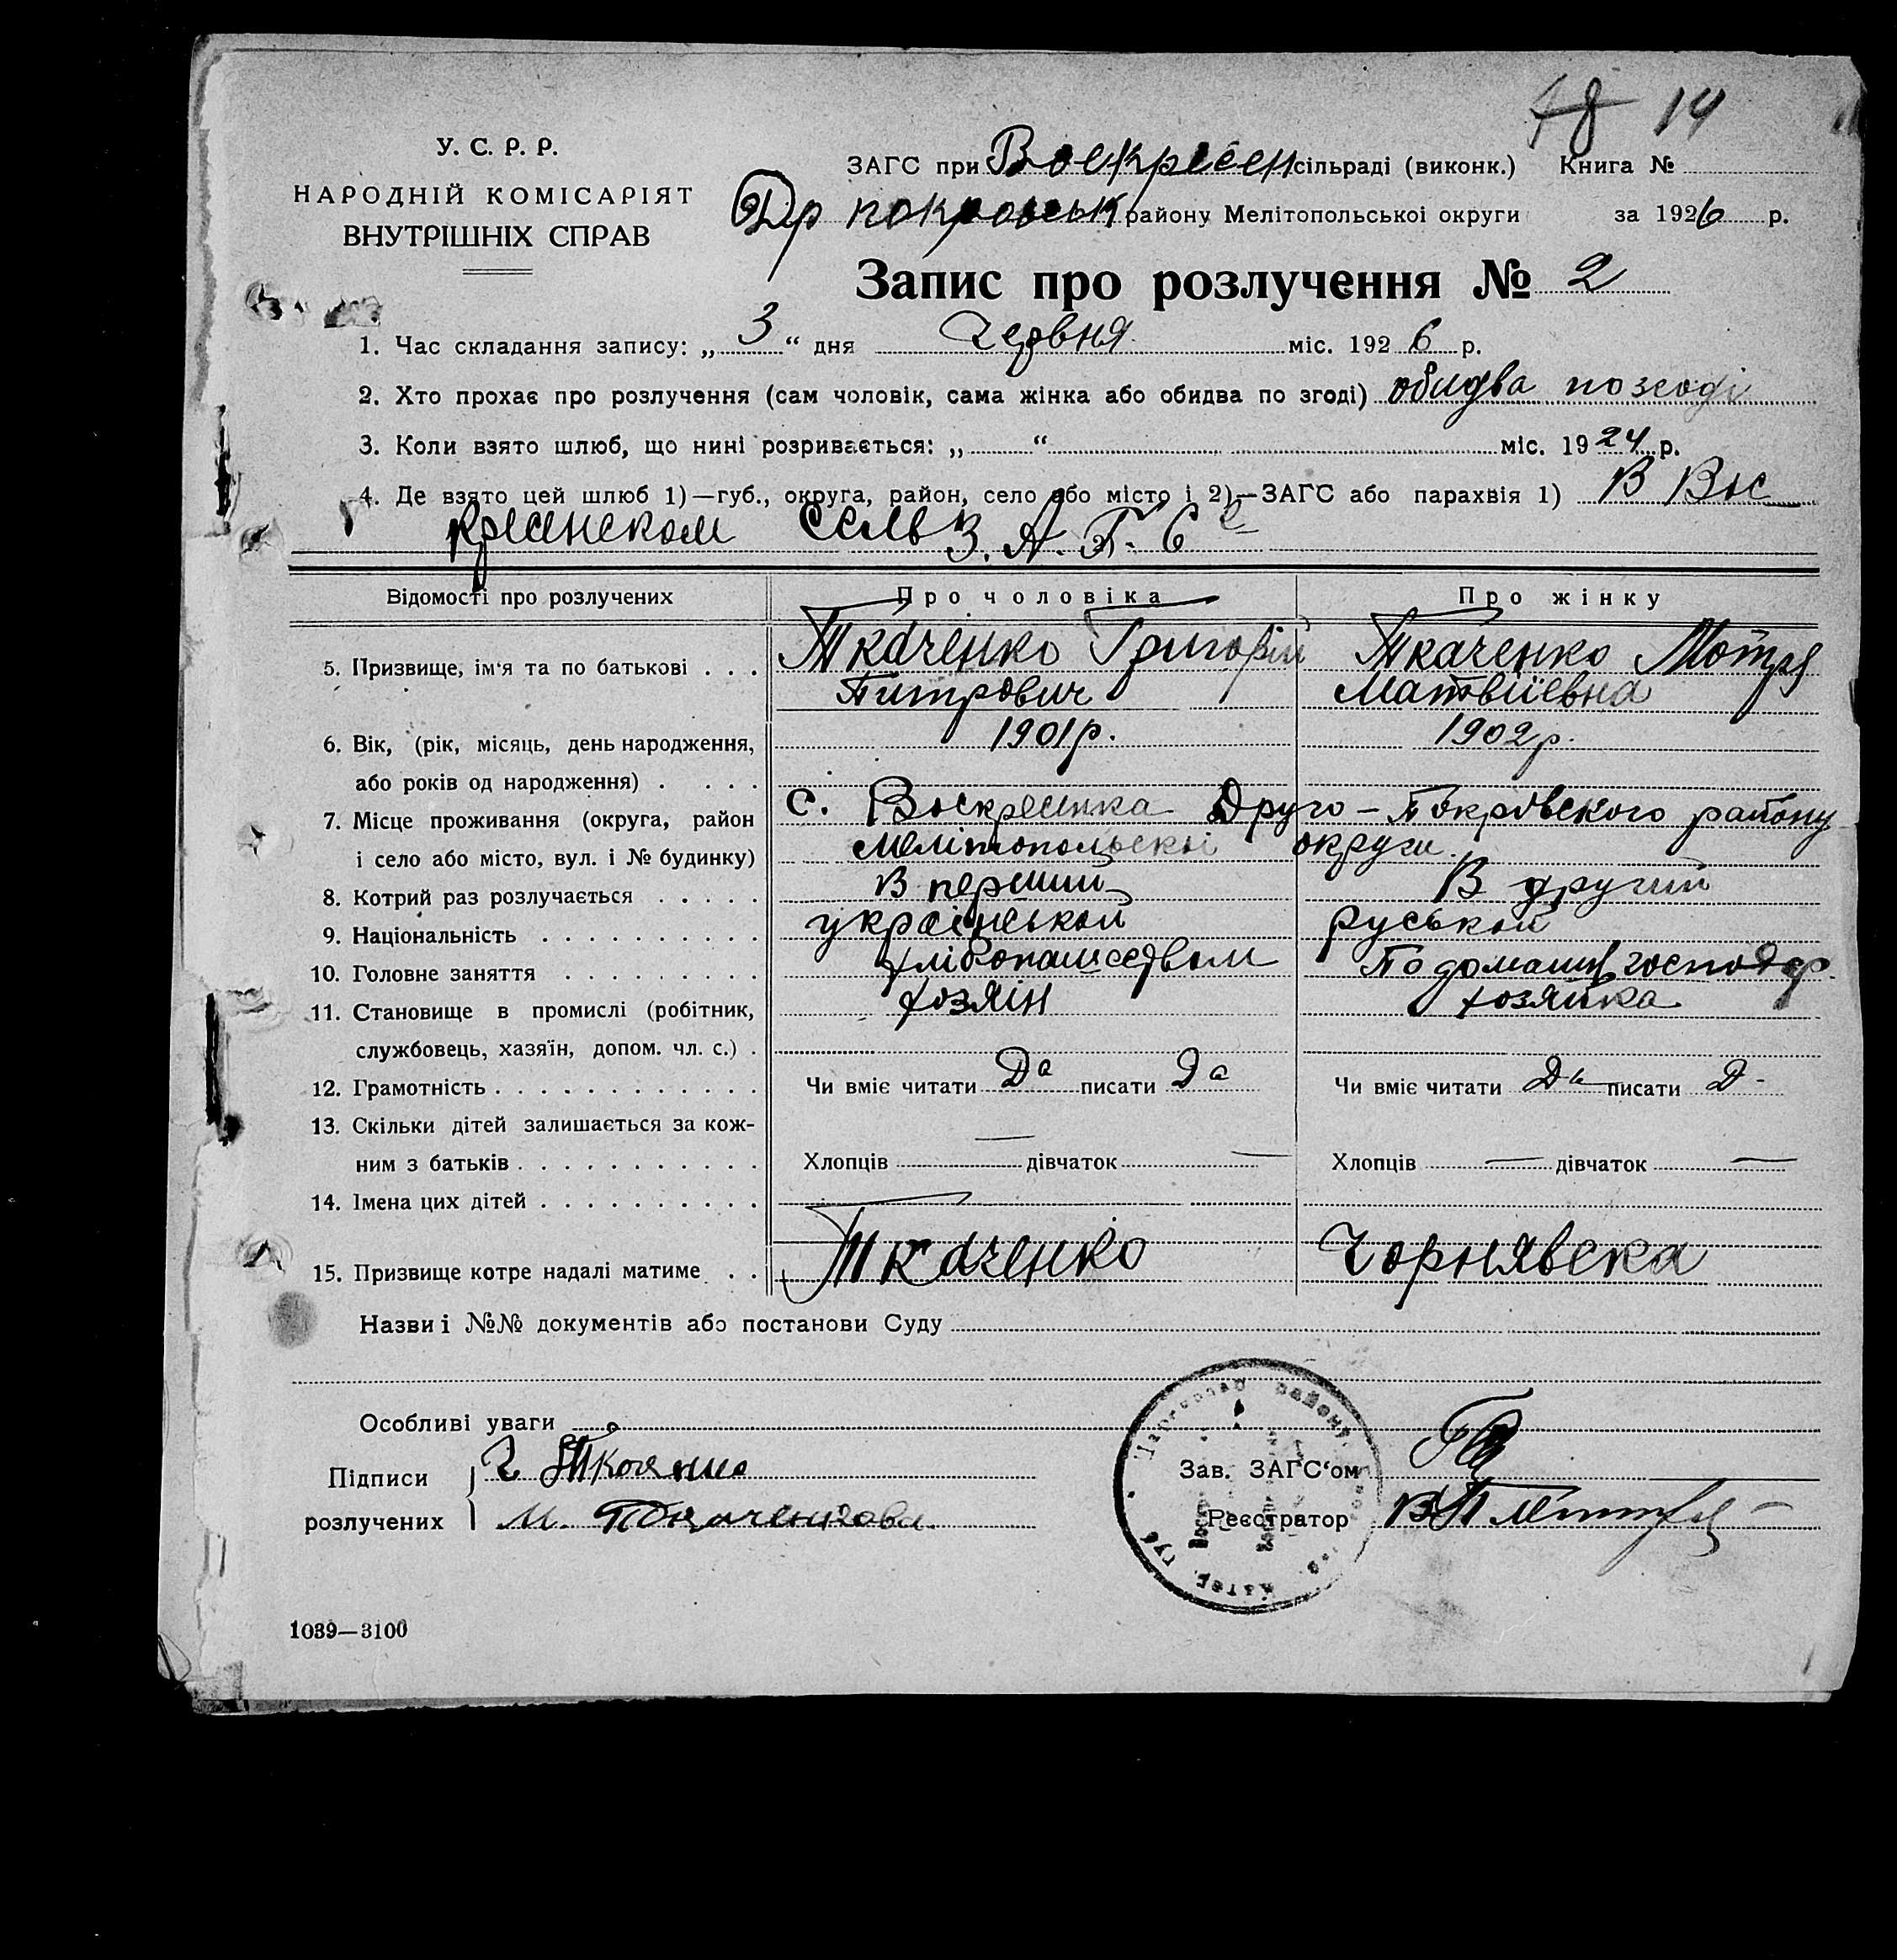 48 14
У. С. Р. Р.
НАРОДНІЙ КОМІСАРІЯТ
ВНУТРІШНІХ СПРАВ
ЗАГС при Воскресен сільраді (виконк.) Книга №
Др покровськ району Мелітопольської округи за 1926 р.
Запис про розлучення № 2
1. Час складання запису: „ 3 “ дня Червня міс. 1926 р.
2. Хто прохає про розлучення (сам чоловік, сама жінка або обидва по згоді) обидва по згоді
3. Коли взято шлюб, що нині розривається: „ “ міс. 1924 р.
4. Де взято цей шлюб 1)—губ., округа, район, село або місто і 2)—ЗАГС або парахвія 1) В Вос
кресенском Сель З. А. Г. С е
Відомості про розлучених Про чоловіка Про жінку
5. Призвище, ім‘я та по батькові . . . Ткаченко Григорій Ткаченко Мотря
Питрович Матвіївна
6. Вік, (рік, місяць, день народження, 1901 р. 1902 р.
або років од народження) . . . .
7. Місце проживання (округа, район с. Воскресенка Друго - Покрівского району
і село або місто, вул. і № будинку) Мелітопольскоі округи.
8. Котрий раз розлучається . . . . . В перший В другий
9. Національність . . . . . . . . . . украінськой руськой
10. Головне заняття . . . . . . . . . хлібопашеством По домашн господар.
11. Становище в промислі (робітник, хозяін хозяйка
службовець, хазяїн, допом. чл. с.) .
12. Грамотність . . . . . . . . . . . . Чи вміє читати Да писати Да Чи вміє читати Да писати Д-
13. Скільки дітей залишається за кож-
ним з батьків . . . . . . . . . . . Хлопців — дівчаток — Хлопців — дівчаток —
14. Імена цих дітей . . . . . . . . . .
15. Призвище котре надалі матиме . . Ткаченко Чорнявска
Назви і №№ документів або постанови Суду
Особливі уваги
Підписи Г Ткаченко Зав. ЗАГС‘ом
розлучених М. Ткаченкова Реєстратор
1039—3100